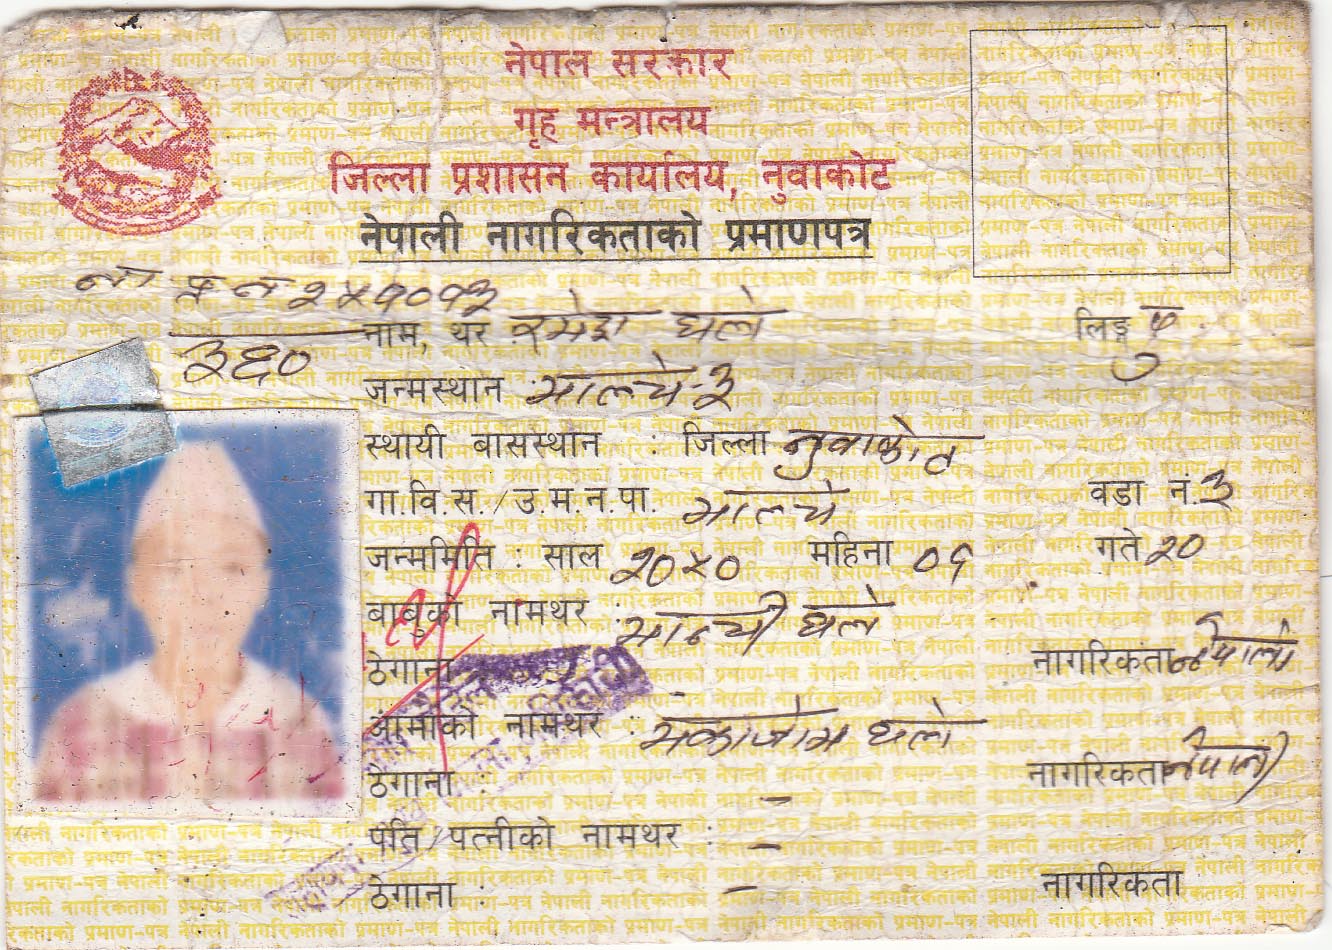 नेपाल सरकार
गृह मन्त्रालय
जिल्ला प्रशासन कार्यालय, नुवाकोट
नेपाली नागरिकताको प्रमाणपत्र
ना प्र नं २५१०१३
३६०
नाम, थर रमेश घले लिङ्ग पु
जन्मस्थान : साल्मे-३
स्थायी बासस्थान : जिल्ला नुवाकोट
गा.वि.स./उ.म.न.पा. साल्मे वडा नं. ३
जन्ममिति : साल २०५० महिना ०९ गते २०
बाबुको नामथर : घले
ठेगाना नागरिकता नेपाली
आमाको नामथर : घले
ठेगाना : – नागरिकता नेपाली
पति/पत्नीको नामथर : –
ठेगाना : – नागरिकता